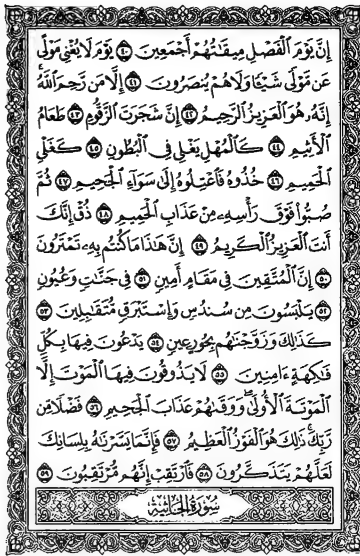 إِنَّ يَوْمَ ٱلْفَصْلِ مِيقَٰتُهُمْ أَجْمَعِينَ ٤٠ يَوْمَ لَا يُغْنِى مَوْلًى
عَن مَّوْلًى شَيْـًٔا وَلَا هُمْ يُنصَرُونَ ٤١ إِلَّا مَن رَّحِمَ ٱللَّهُ
إِنَّهُۥ هُوَ ٱلْعَزِيزُ ٱلرَّحِيمُ ٤٢ إِنَّ شَجَرَتَ ٱلزَّقُّومِ ٤٣ طَعَامُ
ٱلْأَثِيمِ ٤٤ كَٱلْمُهْلِ يَغْلِى فِى ٱلْبُطُونِ ٤٥ كَغَلْىِ
ٱلْحَمِيمِ ٤٦ خُذُوهُ فَٱعْتِلُوهُ إِلَىٰ سَوَآءِ ٱلْجَحِيمِ ٤٧ ثُمَّ
صُبُّوا۟ فَوْقَ رَأْسِهِۦ مِنْ عَذَابِ ٱلْحَمِيمِ ٤٨ ذُقْ إِنَّكَ
أَنتَ ٱلْعَزِيزُ ٱلْكَرِيمُ ٤٩ إِنَّ هَٰذَا مَا كُنتُم بِهِۦ تَمْتَرُونَ
٥٠ إِنَّ ٱلْمُتَّقِينَ فِى مَقَامٍ أَمِينٍ ٥١ فِى جَنَّٰتٍ وَعُيُونٍ
٥٢ يَلْبَسُونَ مِن سُندُسٍ وَإِسْتَبْرَقٍ مُّتَقَٰبِلِينَ ٥٣
كَذَٰلِكَ وَزَوَّجْنَٰهُم بِحُورٍ عِينٍ ٥٤ يَدْعُونَ فِيهَا بِكُلِّ
فَٰكِهَةٍ ءَامِنِينَ ٥٥ لَا يَذُوقُونَ فِيهَا ٱلْمَوْتَ إِلَّا
ٱلْمَوْتَةَ ٱلْأُولَىٰ وَوَقَىٰهُمْ عَذَابَ ٱلْجَحِيمِ ٥٦ فَضْلًا مِّن
رَّبِّكَ ذَٰلِكَ هُوَ ٱلْفَوْزُ ٱلْعَظِيمُ ٥٧ فَإِنَّمَا يَسَّرْنَٰهُ بِلِسَانِكَ
لَعَلَّهُمْ يَتَذَكَّرُونَ ٥٨ فَٱرْتَقِبْ إِنَّهُم مُّرْتَقِبُونَ ٥٩
سُورَةُ الجَاثِيَةِ